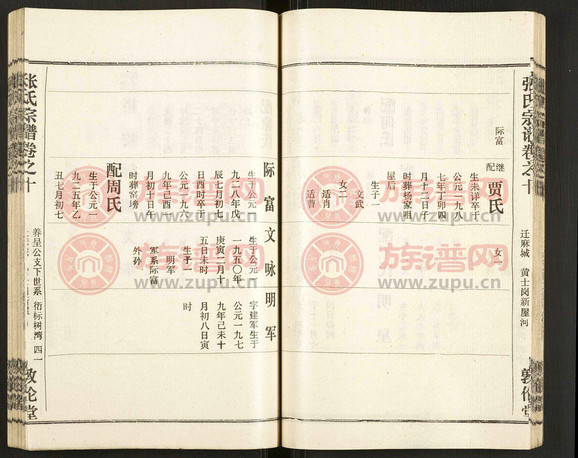 张氏宗谱卷之十
迁麻城 黄士岗新屋河
敦伦堂
际富
继配
贾氏
女一
生未详卒于
公元一九八
七年丁卯四
月十二日子
时葬杨家咀
屋后
生子一
文武
女二
适肖
适曹
际富
文
咏
明
军
生于公元一
九二八年戊
辰七月初七
日酉时卒于
公元一九六
九年己酉
月初十日午
时葬窑塝
配周氏
生于公元一
九二五年乙
丑七月初七
生于公元
一九五〇年
庚寅二月十
五日未时
生子一
明军
军系际富
外孙
字建军生于
公元一九七
九年己未十
月初八日寅
时
张氏宗谱卷之十
养呈公支下世系
衍标树湾
四一
敦伦堂
族谱网
www.zupu.cn
族谱网
www.zupu.cn